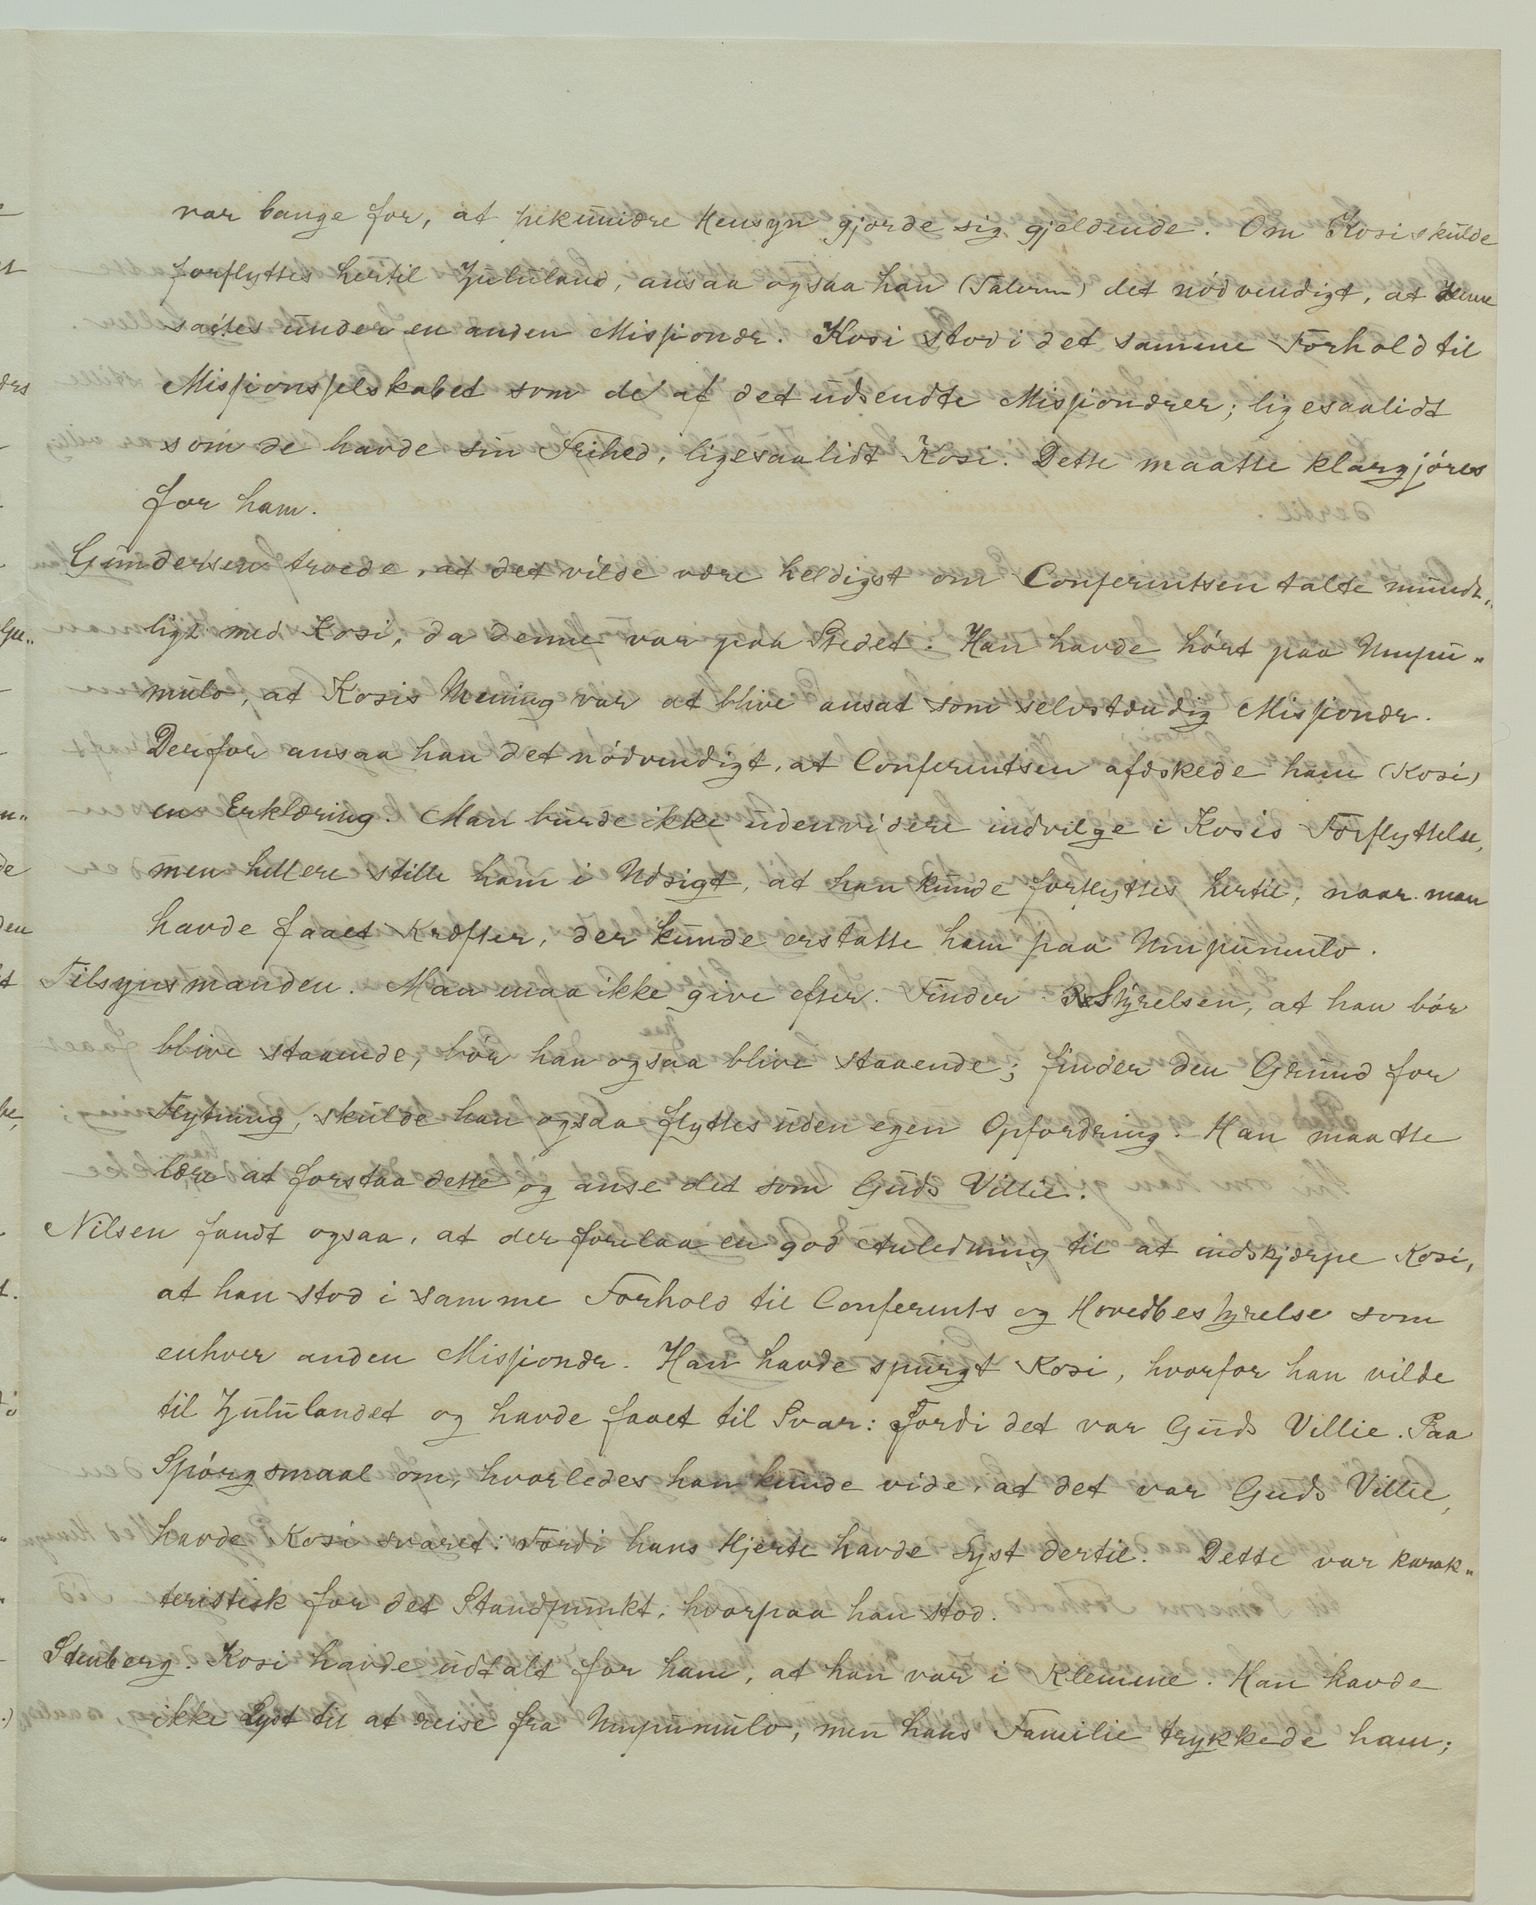 var bange for, at pekuniære Hensyn gjorde sig gjeldende. Om Kosi skulde
forflyttes hertil Zululand, ansaa ogsaa han (Taleren) det nödvendigt, at denne
sattes under en anden Missionær. Kosi stod i det samme Forhold til
Missionsselskabet som de af det udsendte Missionærer; ligesaalidt
som de havde sin Frihed, ligesaalidt Kosi. Dette maatte klargjöres
for ham.
Gundersen troede, at det vilde være heldigst om Conferentsen talte mundt-
ligt med Kosi, da denne var paa Stedet. Han havde hört paa Umpu-
mulo, at Kosis Mening var at blive ansat som selvstændig Missionær.
Derfor ansaa han det nödvendigt, at Conferentsen afæskede ham (Kosi)
en Erklæring. Man burde ikke udenvidere indvilge i Kosis Forflyttelse,
men hellere stille ham i Udsigt, at han kunde forflyttes hertil, naar man
havde faaet Kræfter, der kunde erstatte ham paa Umpumulo.
Tilsynsmanden. Man maa ikke give efter. Finder Styrelsen, at han bör
blive staaende, bör han ogsaa blive staaende; finder den Grund for
Flytning, skulde han ogsaa flyttes uden egen Opfordring. Han maatte
lære at forstaa dette og anse det som Guds Villie.
Nilsen fandt ogsaa, at der forelaa en god Anledning til at indskjærpe Kosi,
at han stod i samme Forhold til Conferents og Hovedbestyrelse som
enhver anden Missionær. Han havde spurgt Kosi, hvorfor han vilde
til Zululandet og havde faaet til Svar: Fordi det var Guds Villie. Paa
Spörgsmaal om, hvorledes han kunde vide, at det var Guds Villie,
havde Kosi svaret: Fordi hans Hjerte havde Lyst dertil. Dette var karak-
teristisk for det Standpunkt, hvorpaa han stod.
Stenberg. Kosi havde udtalt for ham, at han var i Klemme. Han havde
ikke Lyst til at reise fra Umpumulo, men hans Familie trykkede ham;